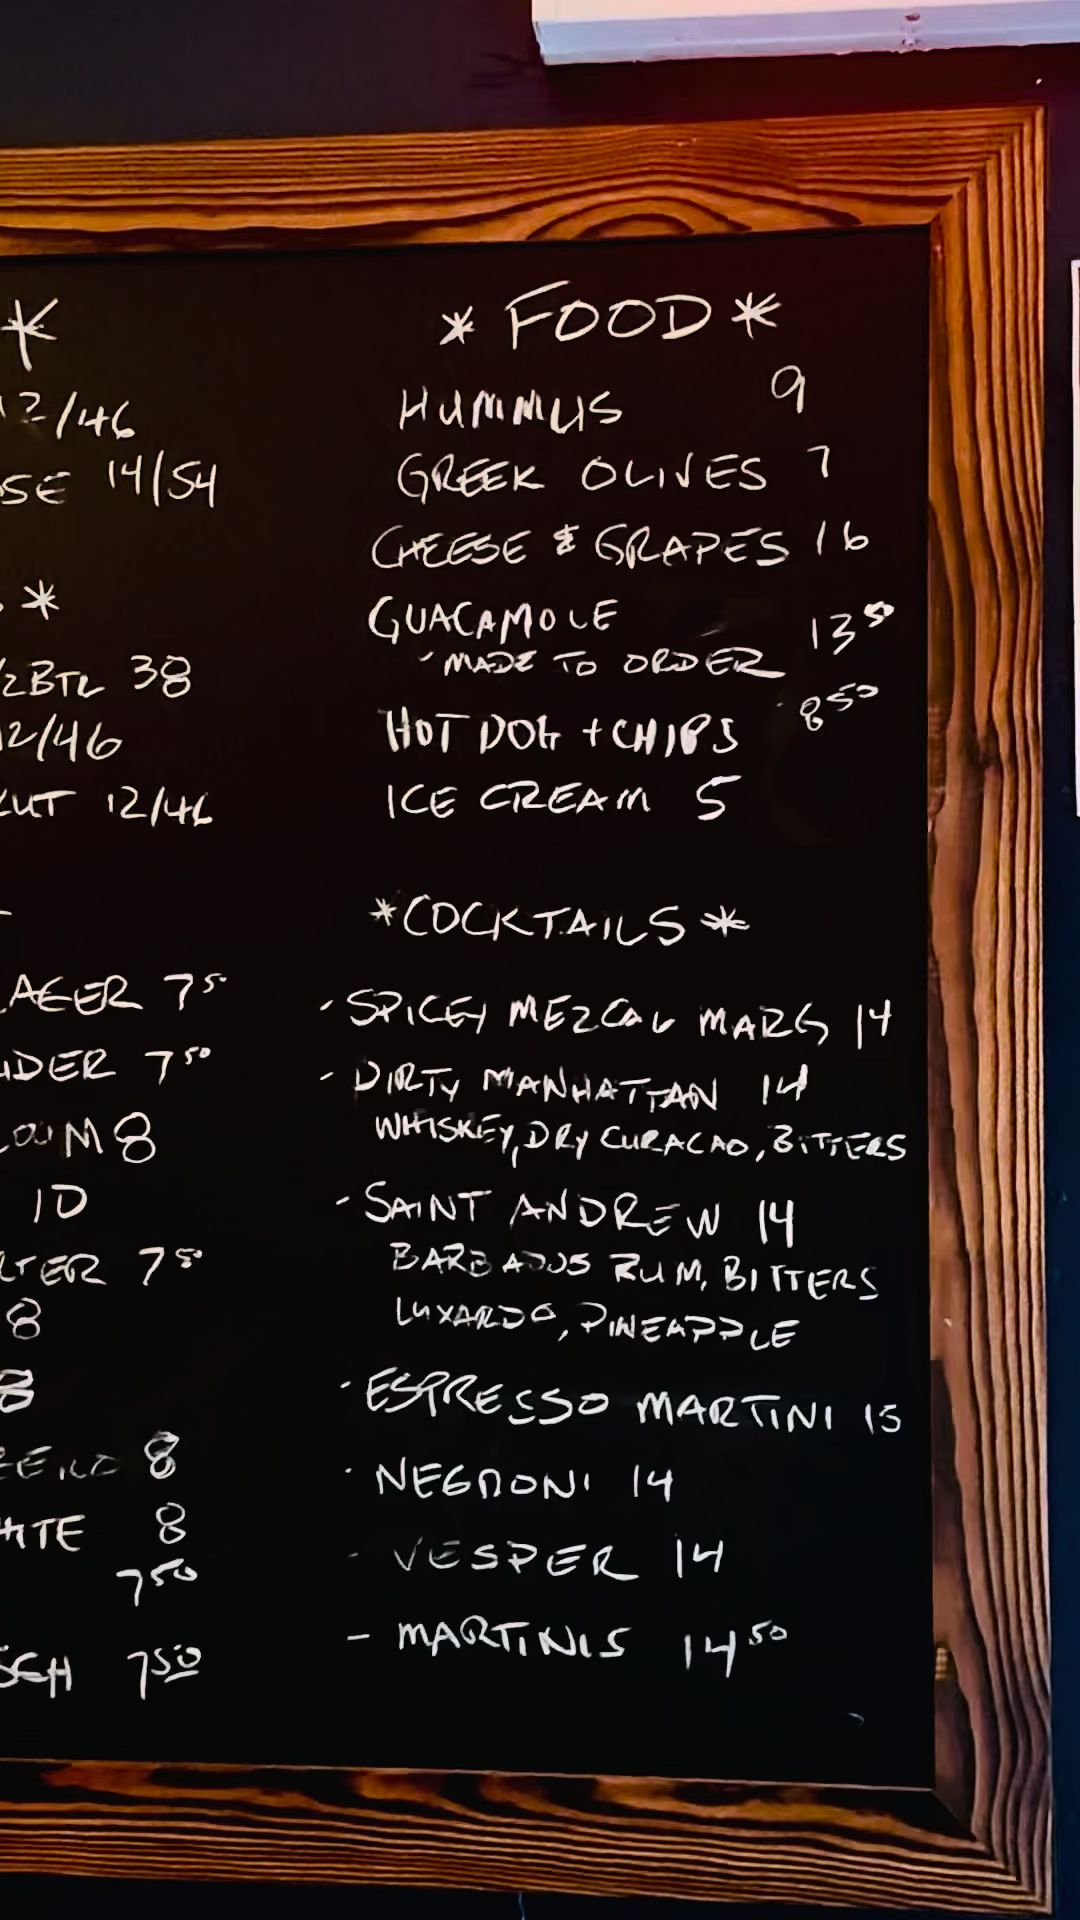 *
12/46
14/54
*
BTL 38
12/46
12/46
7 50
7 50
8
10
7 50
8
8
8
8
7 50
7 50
* FOOD *
HUMMUS 9
GREEK OLIVES 7
CHEESE & GRAPES 16
GUACAMOLE 13 50
- MADE TO ORDER
HOT DOG + CHIPS 8 50
ICE CREAM 5
*COCKTAILS*
- SPICEY MEZCAL MARG 14
- DIRTY MANHATTAN 14
WHISKEY, DRY CURACAO, BITTERS
- SAINT ANDREW 14
BARBADOS RUM, BITTERS
LUXARDO, PINEAPPLE
- ESPRESSO MARTINI 15
- NEGRONI 14
- VESPER 14
- MARTINIS 14 50